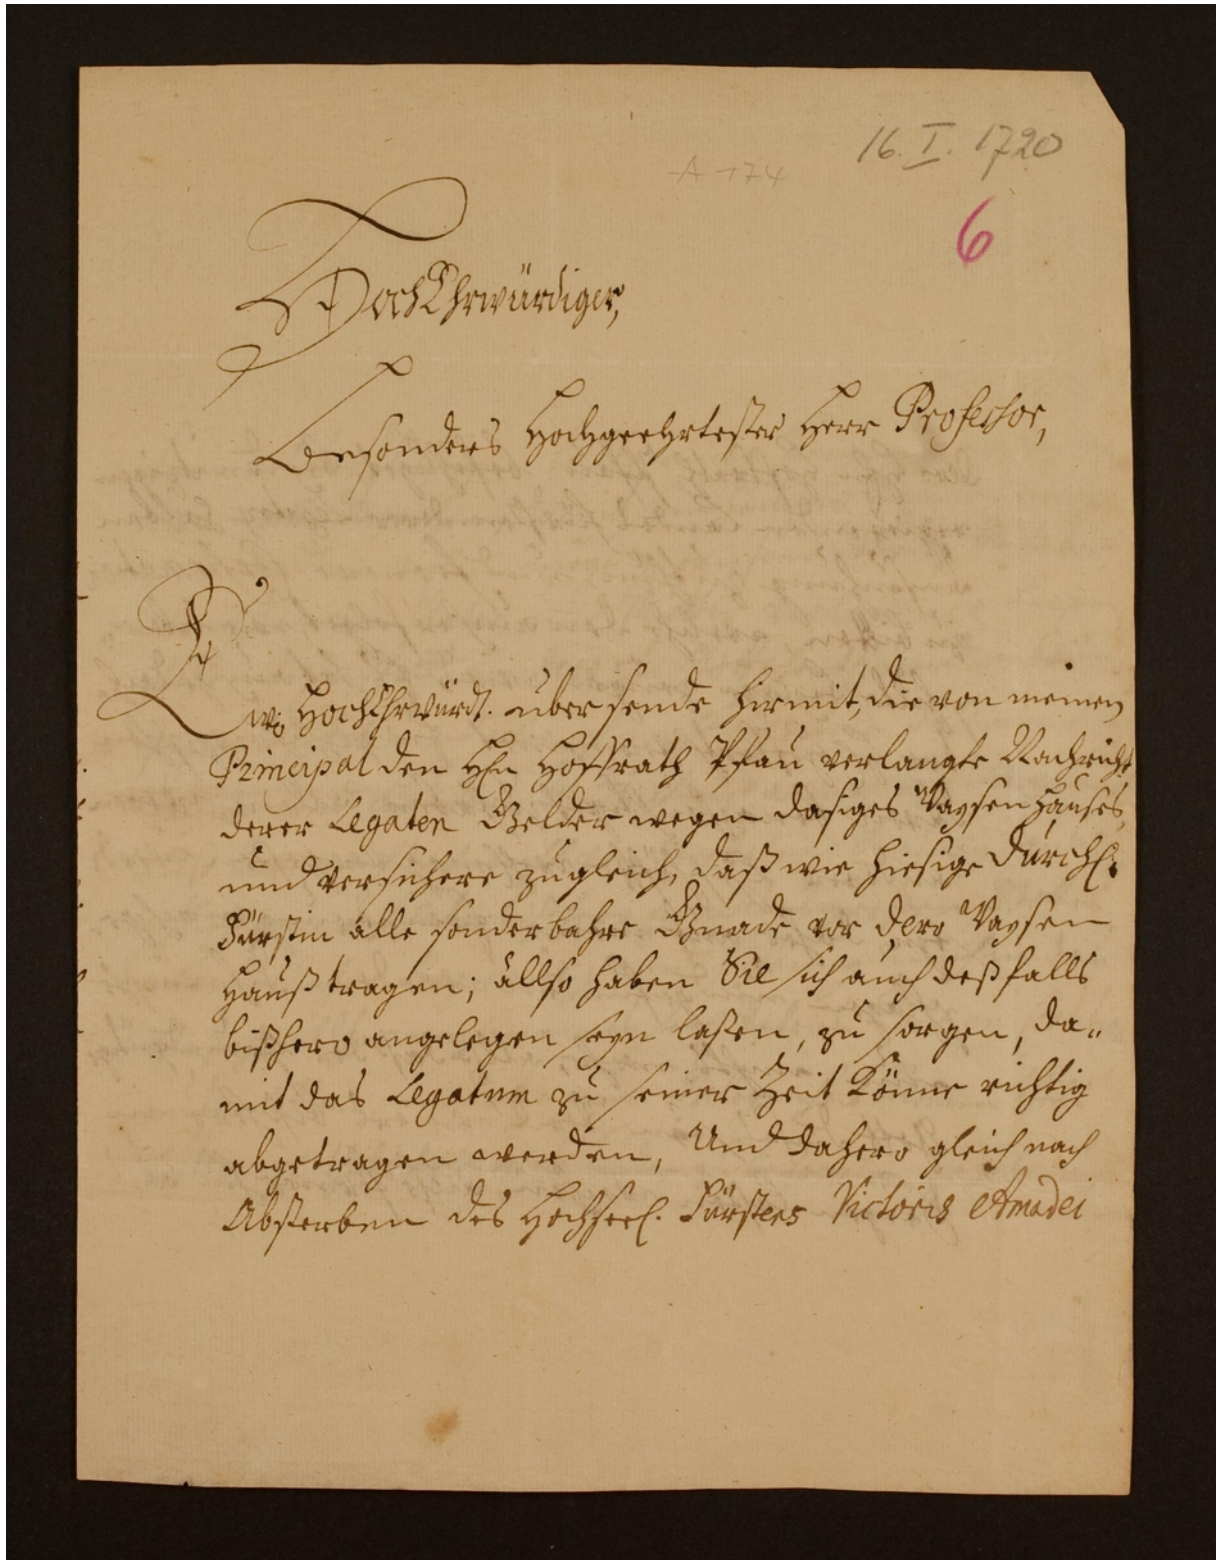 16. I. 1720
A 174
6
HochEhrwürdiger,
Besonders Hochgeehrtester Herr Professor,
Ew: HochEhrwürd. übersende hirmit, die von meinen
Principal den Hln Hoffrath Pfau verlangte Nachricht
derer Legaten Gelder wegen dasiges Waysen Hauses,
und versichere zugleich, daß wie hiesige Durchl.
Fürstin alle sonderbahre Gnade vor dero Waysen
Hauß tragen; allso haben Sie sich auch deßfalls
bißhero angelegen seyn laßen, zu sorgen, da„
mit das Legatum zu seiner Zeit könne richtig
abgetragen werden, Und dahero gleich nach
Absterben des Hochseel. Fürstens Victoris Amadei